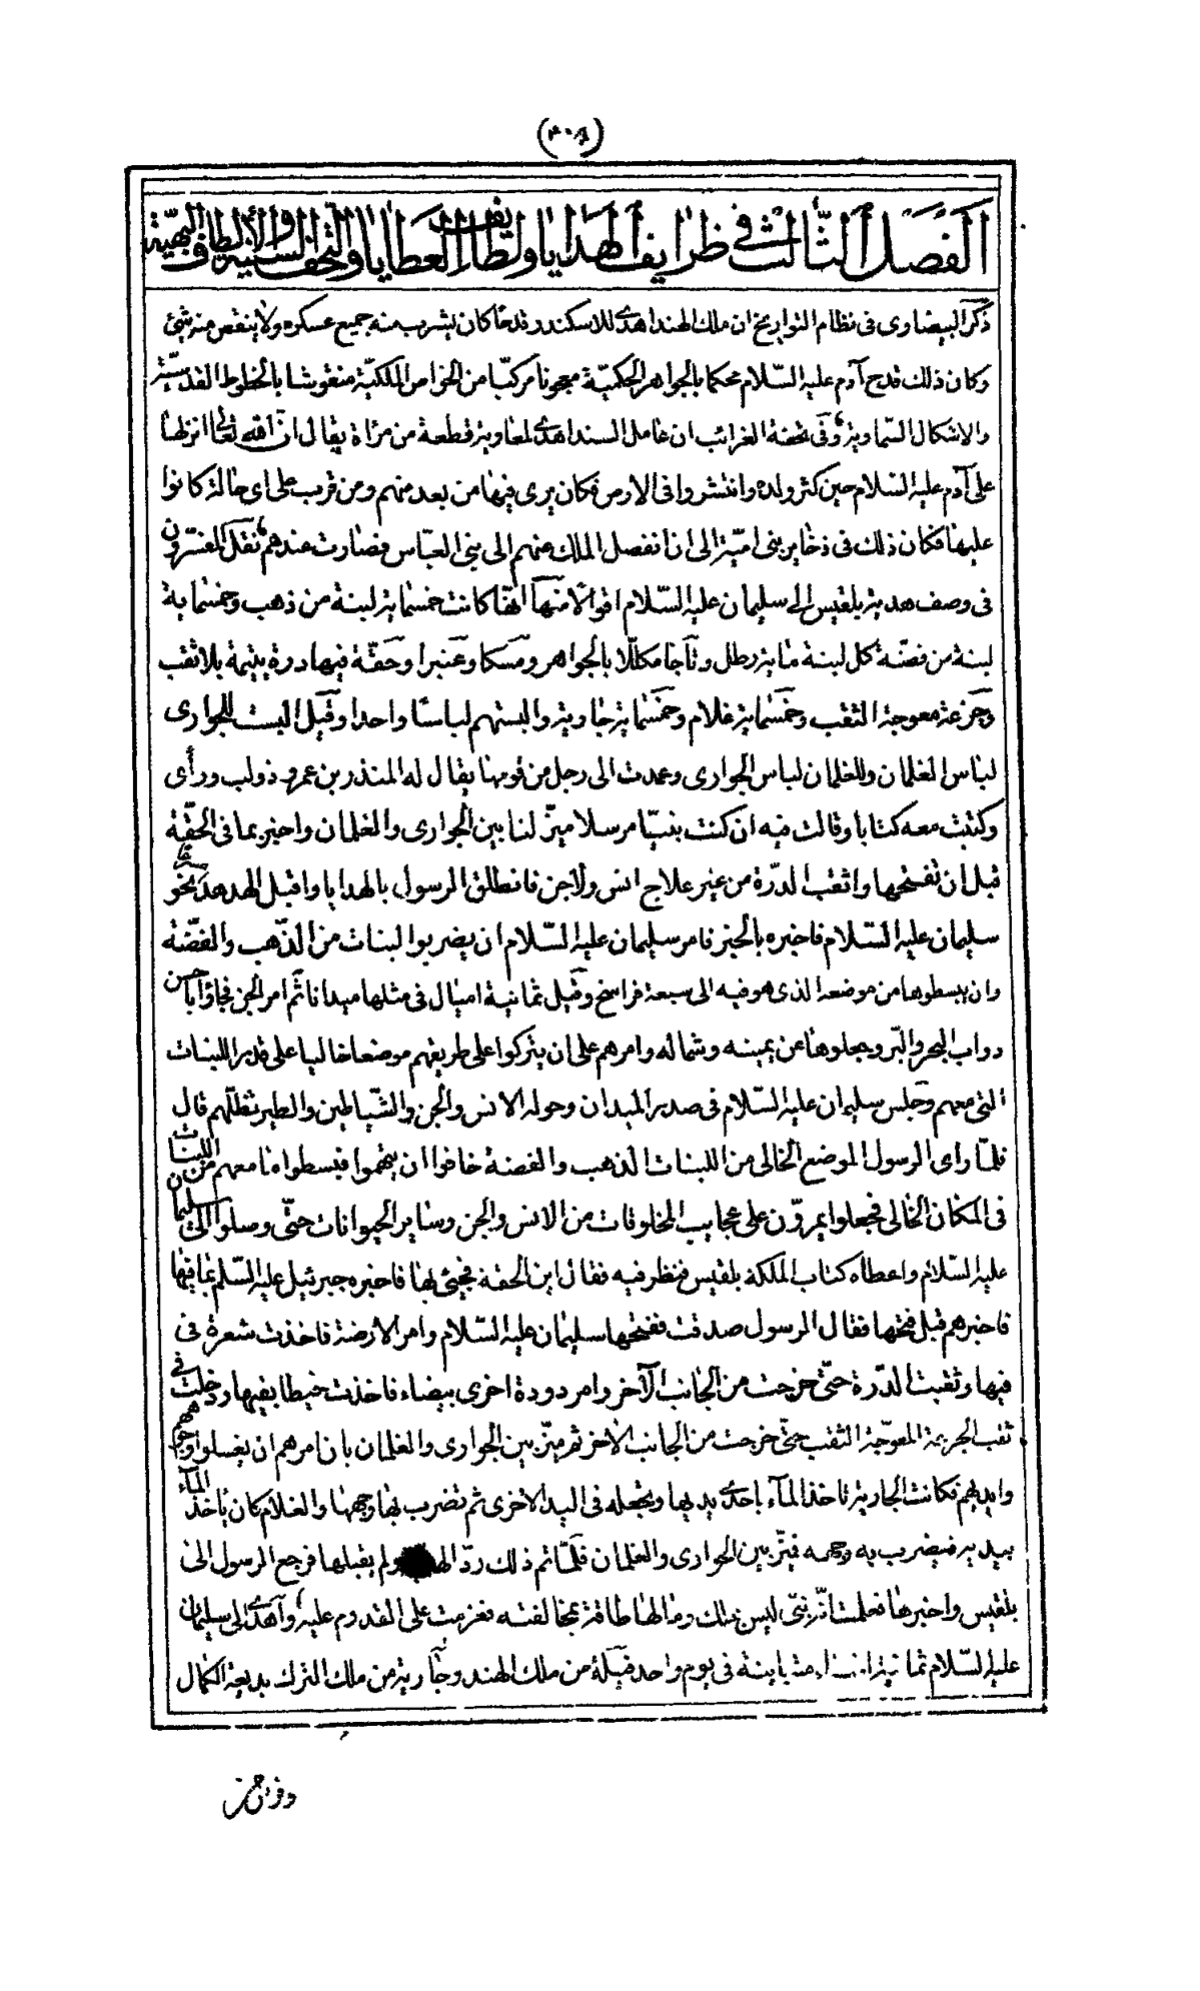 (٣٠٤)
الفصل الثالث في ظرايف الهدايا ولطايف العطايا والتحف السنية والألطاف البهية
ذكر البيضاوى فى نظام التواريخ ان ملك الهند اهدى للاسكندر قدحا كان يشرب منه جميع عسكره ولا ينقص منه شئ
وكان ذلك قدح آدم عليه السّلام محكما بالجواهر الحكميّة معجونا مركبّا من الخواص الملكيّة منقوشا بالخطوط القدسيّة
والاشكال السّماوية وفى تحفة الغرائب ان عامل السند اهدى لمعاوية قطعة من مرٰاة يقال ان الله تعالى انزلها
على آدم عليه السّلام حين كثر ولده وانتشروا فى الارض فكان يرى فيها من بعد منهم ومن قرب على اى حالة كانوا
عليها فكان ذلك فى ذخاير بنى اميّة الى ان انفصل الملك عنهم الى بنى العبّاس فصارت عندهم نقل المفسّرون
فى وصف هدية بلقيس الى سليمان عليه السّلام اقوالا منها انها كانت خمسماية لبنة من ذهب وخمسماية
لبنة من فضّة كل لبنة ماية رطل وتاجا مكلّلا بالجواهر ومسكا وعنبرا وحقّة فيها درة يتيمة بلا ثقب
وجزعة معوجة الثقب وخمسماية غلام وخمسماية جاوية والبستهم لباسا واحدا وقيل البست للجوارى
لباس الغلمان وللغلمان لباس الجوارى وعمدت الى رجل من قومها يقال له المنذر بن عمرو ذو لب ورأى
وكتبت معه كتابا وقالت فيه ان كنت نبيّا مرسلا ميزّ لنا بين الجوارى والغلمان واخبر بما فى الحقّة
قبل ان تفتحها واثقب الدرّة من غير علاج انس ولا جن فانطلق الرسول بالهدايا واقبل الهدهد نحو
سليمان عليه السّلام فاخبره بالخبر فامر سليمان عليه السّلام ان يضربوا لبنات من الذّهب والفضّة
وان يبسطوها من موضعه الذى هو فيه الى سبعة فراسخ وقيل ثمانية اميال فى مثلها ميدانا ثم امر الجن فجاؤا باحسن
دواب البحر والبّر وجعلوها عن يمينه وشماله وامرهم على ان يتركوا على طريقهم موضعا خاليا على قدر اللبنات
التى معهم وجلس سليمان عليه السّلام فى صدر الميدان وحوله الانس والجن والشّياطين والطير تظلّهم قال
فلمّا راى الرسول الموضع الخالى من اللبنات الذهب والفضة خافوا ان يتهموا فبسطوا ما معهم من اللبنات
فى المكان الخالى فجعلوا يمرّون على عجايب المخلوقات من الانس والجن وساير الحيوانات حتّى وصلوا الى سليمان
عليه السّلام واعطاه كتاب الملكة بلقيس فنظر فيه فقال اين الحقة فجيئ بها فاخبره جبرئيل عليه السّلم بما فيها
فاخبرهم قبل فتحها فقال الرسول صدقت ففتحها سليمان عليه السّلام وامر الارضة فاخذت شعرة فى
فيها وثقبت الدّرة حتّى خرجت من الجانب الآخر وامر دودة اخرى بيضاء فاخذت خيطا بفيها ودخلت فى
ثقب الجزعة المعوّجة الثقب حتّى خرجت من الجانب الاخر ثم ميّز بين الجوارى والغلمان بان امرهم ان يغسلوا وجوههم
وايديهم فكانت الجارية تاخذ المآء باحدى يديها وتجعله فى اليد الاخرى ثم تضرب بها وجهها والغلام كان ياخذ المآء
بيديه فيضرب به وجهه فميّز بين الجوارى والغلمان فلمّا تم ذلك ردّ ولم يقبلها فرجع الرسول الى
بلقيس واخبرها فعلمت انّه نبىّ ليس بملك وما لها طاقة بمخالفته فعزمت على القدوم عليه واهدى الى سليمان
عليه السّلام ثمانية اشياء متباينة فى يوم واحد فيلة من ملك الهند وجارية من ملك الترك بديعة الكمال
وفرس من